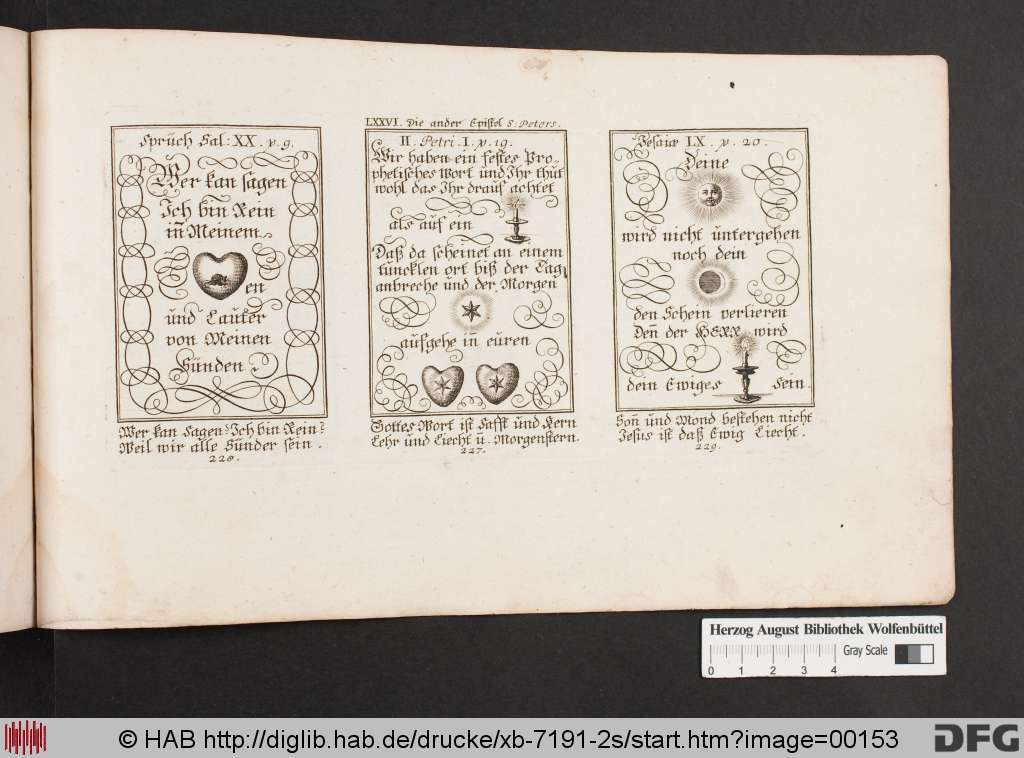 Sprüch Sal: XX. v. 9.
Wer kan sagen
Ich bin Rein
in̄ Meinem
en
und Lauter
von Meinen
Sünden
Wer kan Sagen? Ich bin Rein?
Weil wir alle Sünder sein.
228.
LXXVI. Die ander Epistol S: Peters.
II. Petri. I. v. 19.
Wir haben ein festes Pro-
phetisches Wort und Ihr thut
wohl das Ihr drauf achtet
als auf ein
Daß da scheinet an einem
tuncklen ort biß der Tag
anbreche und der Morgen
aufgehe in̄ euren
Gottes Wort ist Safft und Kern
Lehr und Liecht ū. Morgenstern.
227.
Jesaiæ LX. v. 20.
Deine
wird nicht untergehen
noch dein
den Schein verlieren
Den̄ der HERR wird
dein Ewiges sein.
Son̄ und Mond bestehen nicht
Jesus ist daß Ewig Liecht.
229.
Herzog August Bibliothek Wolfenbüttel
0 1 2 3 4 Gray Scale
© HAB http://diglib.hab.de/drucke/xb-7191-2s/start.htm?image=00153
DFG